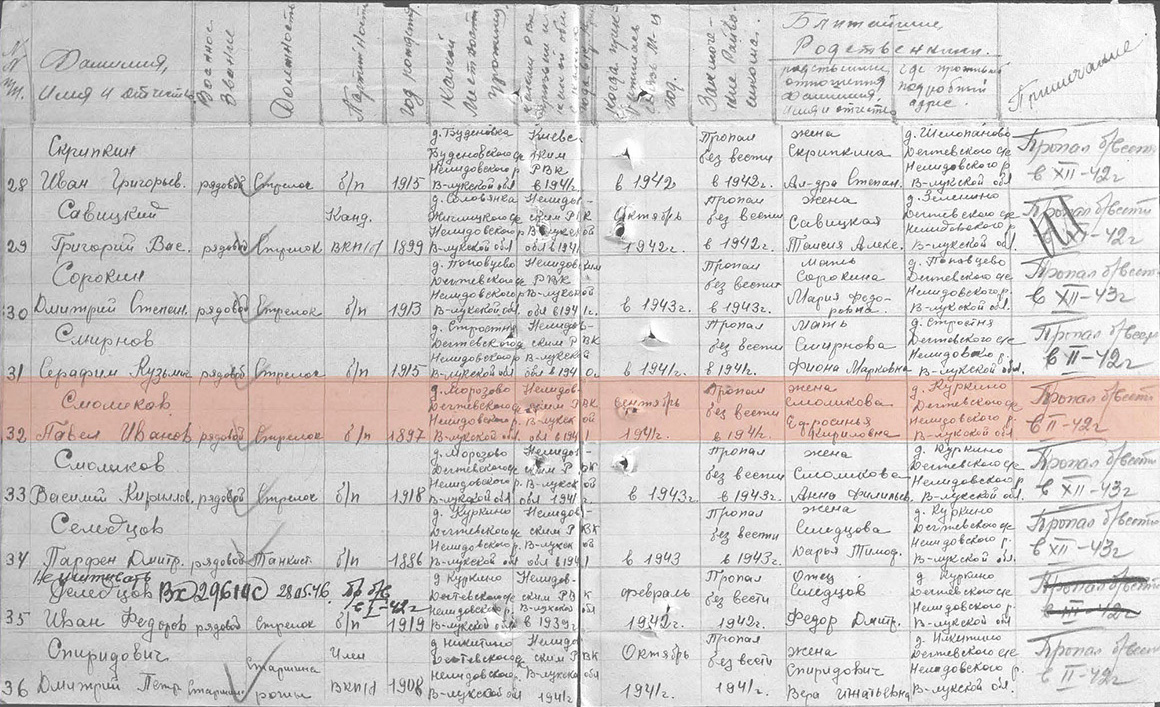 № пп.
Фамилия,
Имя и отчество
Военное звание
Должность
Партийность
Год рождения
Какой местности уроженец
Когда прекратилась связь М-ц год.
Заключение Райвоенкома.
Ближайшие Родственники.
родствен. отношения Фамилия Имя и отчество
где проживает подробный адрес.
Примечание
28 Скрипкин Иван Григорьев. рядовой Стрелок б/п 1915 д. Буденовка Буденовского с/с Нелидовского р В-лукской обл Киевским РВК в 1941г. в 1942 Пропал без вести в 1942г. жена Скрипкина Ал-дра Степан. д. Шелопаново Дегтевского с/с Нелидовского р. В-лукской обл Пропал б/вести в XII-42г
29 Савицкий Григорий Вас. рядовой Стрелок Канд. ВКП/б 1899 Нелидовского р В-лукской обл Нелидовским РВК обл в 1941г Октябрь 1942г. Пропал без вести в 1942г. жена Савицкая Таисия Алекс. д. Зеленино Дегтевского с/с Нелидовского р. В-лукской обл Пропал б/вести -42г
30 Сорокин Дмитрий Степан. рядовой Стрелок б/п 1913 д. Поповцево Дегтевского с/с Нелидовского р В-лукской обл. Нелидовским РВК В-лукской обл в 1941г в 1943г. Пропал без вести в 1943г. Мать Сорокина Мария Федоровна. д. Поповцево Дегтевского с/с Нелидовского р. В-лукской обл. Пропал б/вести в XII-43г
31 Смирнов Серафим Кузьмич рядовой Стрелок б/п 1915 д. Стростня Дегтевского с/с Нелидовского р В-лукской обл Нелидовским РВК В-лукской обл в 194 в 1941г. Пропал без вести в 1941г. Мать Смирнова Фиона Марковна д. Стростня Дегтевского с/с Нелидовского р В-лукской обл. Пропал б/вести в II-42г
32 Смоликов Павел Иванов рядовой Стрелок б/п 1897 д. Морозово Дегтевского с/с Нелидовского р В-лукской обл Нелидовским РВК В-лукской обл в 1941 сентябрь 1941г. Пропал без вести в 1941г. жена Смоликова Ефросинья Кириловна д. Куркино Дегтевского с/с Нелидовского р. В-лукской обл Пропал б/вести в II-42г
33 Смоликов Василий Кириллов. рядовой Стрелок б/п 1918 д. Морозово Дегтевского с/с Нелидовского р. В-лукской обл Нелидовским РВК В-лукской обл 1941г в 1943г. Пропал без вести в 1943г. жена Смоликова Анна Филипьев. д. Куркино Дегтевского с/с Нелидовского р. В-лукской обл. Пропал б/вести в XII-43г
34 Селедцов Парфен Дмитр. рядовой Танкист. б/п 1886 д. Куркино Дегтевского с/с Нелидовского р. В-лукской обл Нелидовским РВК В-лукской обл в 1941 в 1943 Пропал без вести в 1943г. жена Селедцова Дарья Тимоф. д. Куркино Дегтевского с/с Нелидовского р. В-лукской обл. Пропал б/вести в XII-43г
Не учитывать Вх 29611с 28.05.46. Пр б/в в I-42г
35 Селедцов Иван Федоров рядовой Стрелок б/п 1919 д Куркино Дегтевского с/с Нелидовского р. В-лукской обл Нелидовским РВК В-лукской обл в 1939г. февраль 1942г. Пропал без вести 1942г. Отец Селедцов Федор Дмитр. д Куркино Дегтевского с/с Нелидовского р. В-лукской обл Пропал б/вести в III-42г
36 Спиридович Дмитрий Петр Старшина Старшина роты Член ВКП/б 1908 д Никитино Дегтевского с/с Нелидовского р. В-лукской обл. Нелидовским РВК В-лукской обл 1941г Октябрь 1941г. Пропал без вести 1941г. жена Спиридович Вера Игнатьевна д. Никитино Дегтевского с/с Нелидовского р. В-лукской обл. Пропал б/вести в II-42г